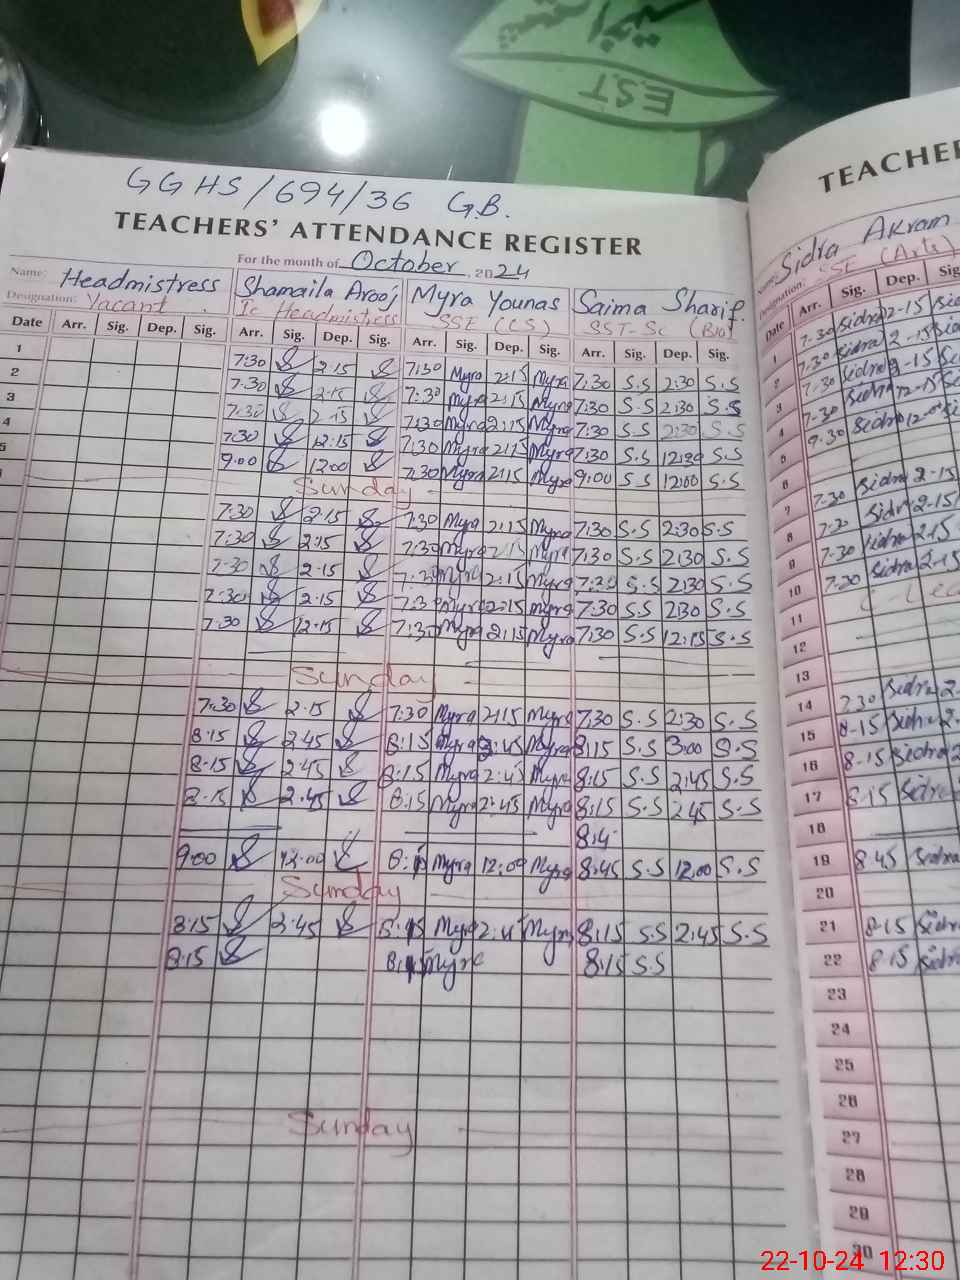 EST
GGHS/694/36 GB.
TEACHERS' ATTENDANCE REGISTER
For the month of October, 2024
Name: Headmistress Shamaila Arooj Myra Younas Saima Sharif
Designation: Vacant Ic Headmistress SSE (CS) SST-Sc (Bio)
Date Arr. Sig. Dep. Sig. Arr. Sig. Dep. Sig. Arr. Sig. Dep. Sig. Arr. Sig. Dep. Sig.
1 7:30 2:15 7:30 Myra 2:15 Myra 7:30 S.S 2:30 S.S
2 7:30 2:15 7:30 Myra 2:15 Myra 7:30 S.S 2:30 S.S
3 7:30 2:15 7:30 Myra 2:15 Myra 7:30 S.S 2:30 S.S
4 7:30 12:15 7:30 Myra 2:15 Myra 7:30 S.S 12:30 S.S
5 9:00 12:00 7:30 Myra 2:15 Myra 9:00 S.S 12:00 S.S
Sunday
7:30 2:15 7:30 Myra 2:15 Myra 7:30 S.S 2:30 S.S
7:30 2:15 7:30 Myra 2:15 Myra 7:30 S.S 2:30 S.S
7:30 2:15 7:30 Myra 2:15 Myra 7:30 S.S 2:30 S.S
7:30 2:15 7:30 Myra 2:15 Myra 7:30 S.S 2:30 S.S
7:30 12:15 7:30 Myra 2:15 Myra 7:30 S.S 12:15 S.S
Sunday
7:30 2:15 7:30 Myra 2:15 Myra 7:30 S.S 2:30 S.S
8:15 2:45 8:15 Myra 2:45 Myra 8:15 S.S 3:00 S.S
8:15 2:45 8:15 Myra 2:45 Myra 8:15 S.S 2:45 S.S
8:15 2:45 8:15 Myra 2:45 Myra 8:15 S.S 2:45 S.S
8:4
9:00 12:00 Myra 12:00 Myra 8:45 S.S 12:00 S.S
Sunday
8:15 2:45 Myra Myra 8:15 S.S 2:45 S.S
8:15 Myra 8:15 S.S
Sunday
TEACHE
Name: Sidra Akram
Designation: SSE (Arts)
Date Arr. Sig. Dep. Sig
1 7-30 Sidra 2-15
2 7-30 Sidra 2-15
3 7-30 Sidra 2-15
4 7-30 Sidra 12-15
5 9-30 Sidra 12-00
6
7 7-30 Sidra 2-15
8 7-30 Sidra 2-15
9 7-30 Sidra 2-15
10 7-30 Sidra 2-15
11
12
13
14 7-30 Sidra 2-
15 8-15 Sidra 2-
16 8-15 Sidra 2
17 8-15 Sidra
18
19 8-45 Sidra
20
21 8-15 Sidra
22 8-15 Sidra
23
24
25
26
27
28
29
30
22-10-24 12:30